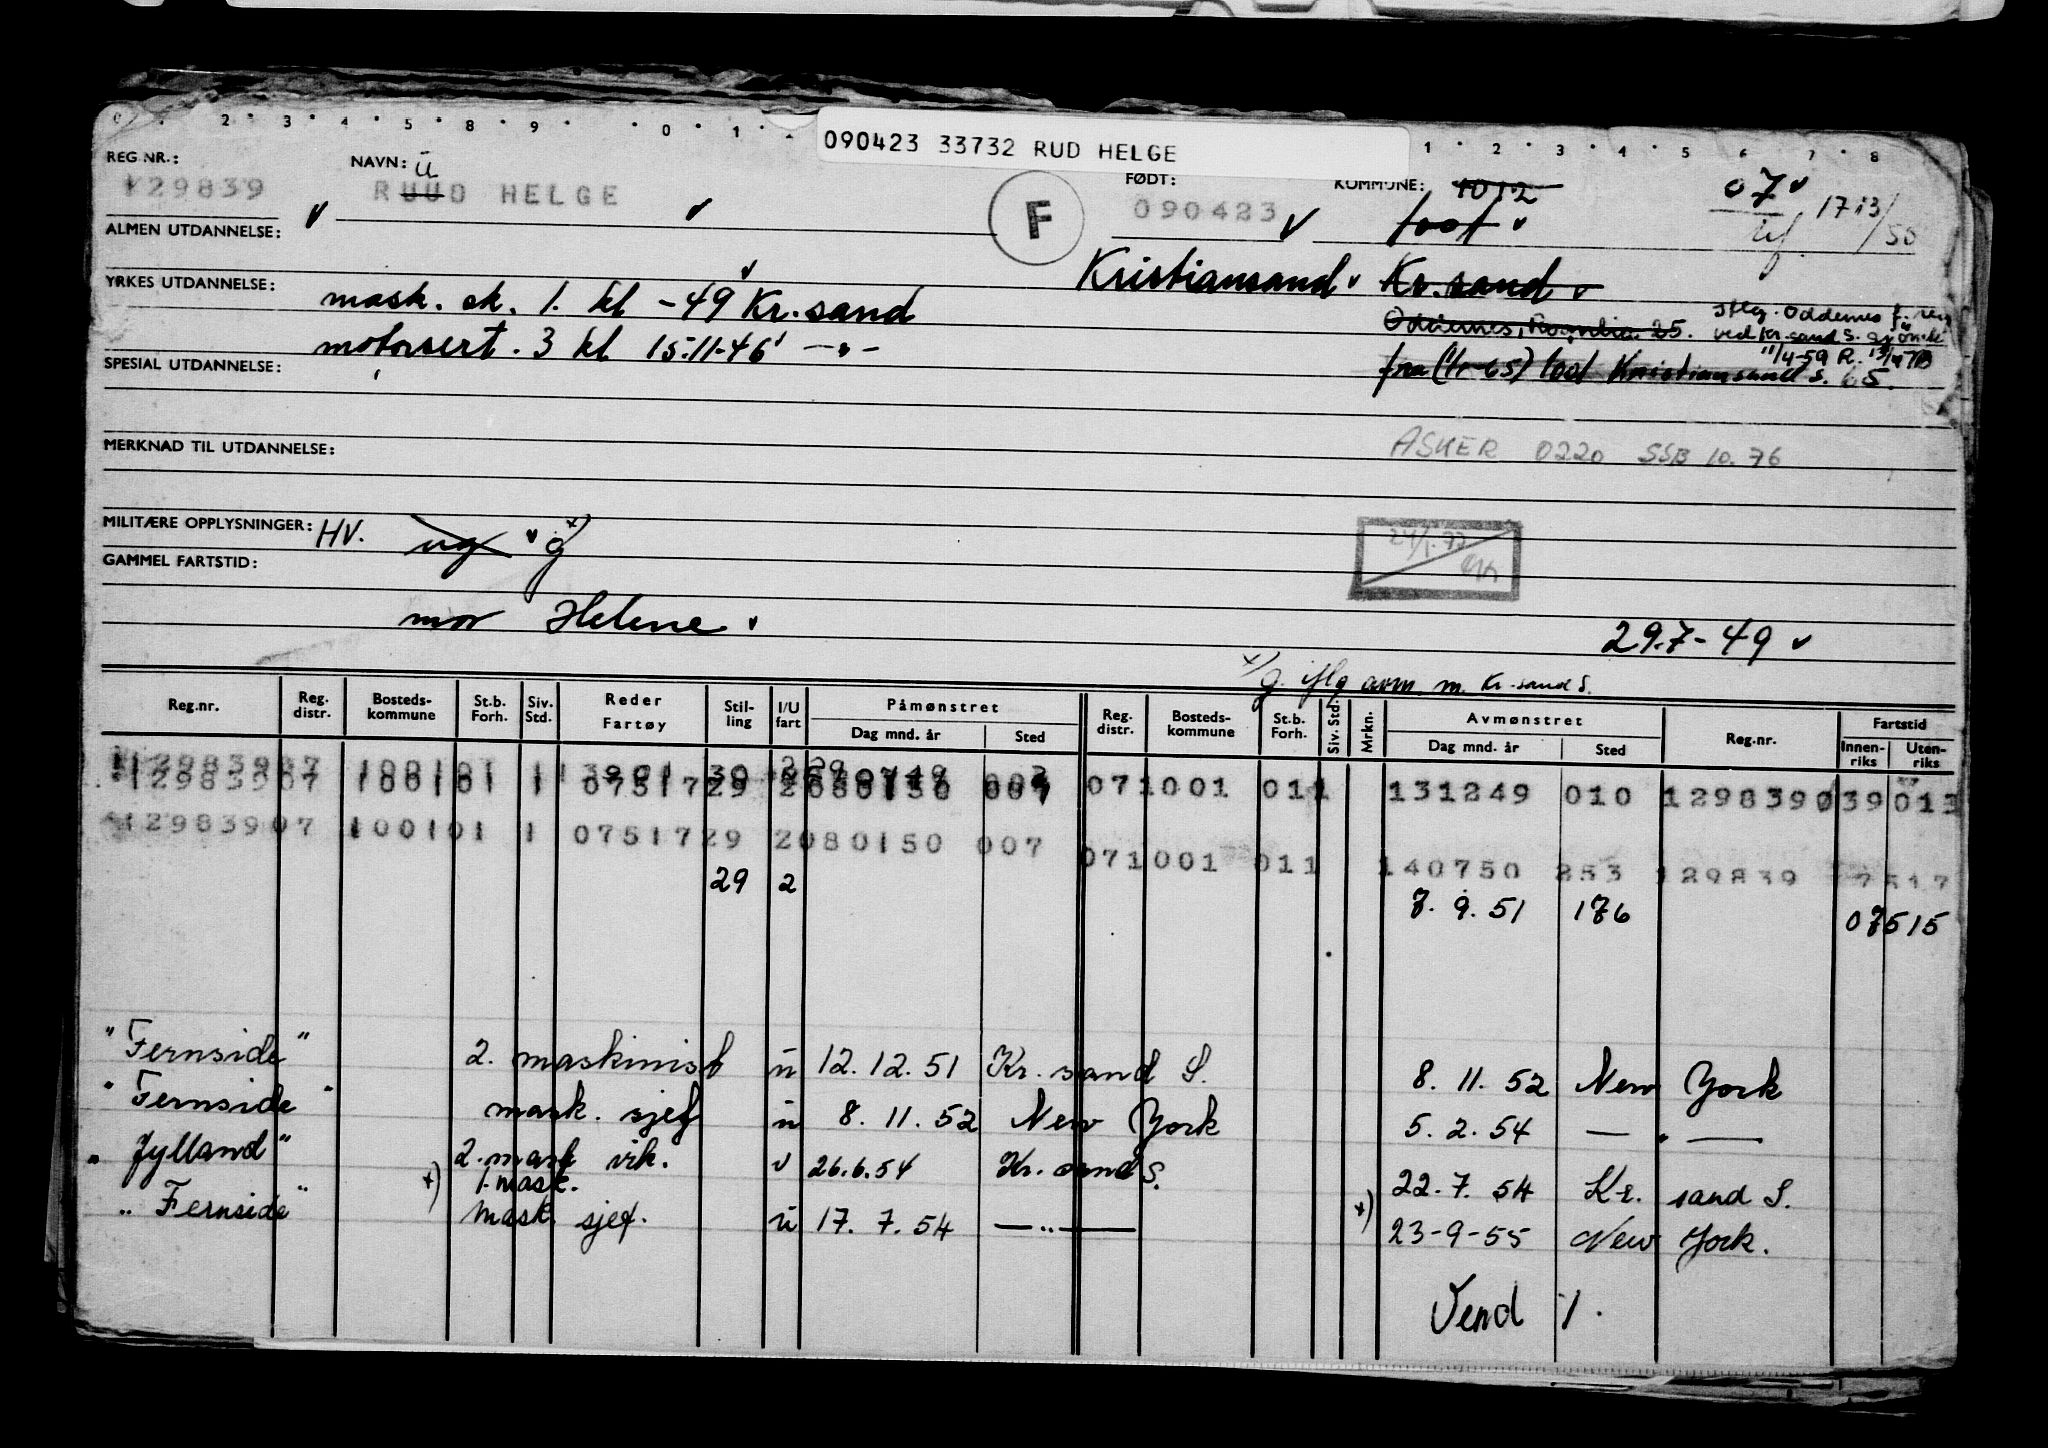 090423 33732 RUD HELGE
REG NR.:
129839
NAVN: u
RUUD HELGE
F
FØDT:
090423
KOMMUNE: 1012
1001
07
1713/50
ALMEN UTDANNELSE:
Kristiansand Kr.sand
YRKES UTDANNELSE:
mask. sk. 1. kl -49 Kr.sand
motorsert. 3 kl 15.11.46 -"-
Oddernes, 25.
iflg. Oddernes f. reg
ved Kr.sand S. sjømk
11/4-59 R.
SPESIAL UTDANNELSE:
fra (1/1-65) 1001 Kristiansand S. 65.
MERKNAD TIL UTDANNELSE:
ASKER 0220 SSB 10.76
MILITÆRE OPPLYSNINGER: HV. ug g x)
GAMMEL FARTSTID:
mor Helene
29.7-49
x) g. iflg avm. m. Kr.sand S.
Reg.nr. Reg. distr. Bosteds-kommune St.b. Forh. Siv. Std. Reder Fartøy Stil-ling I/U fart Påmønstret Dag mnd. år Sted Reg. distr. Bosteds-kommune St.b. Forh. Siv. Std. Mrkn. Avmønstret Dag mnd. år Sted Reg.nr. Fartstid Innen-riks Uten-riks
12983907 100101 1 07517 29 2080150 007 071001 011 131249 010 1298390 39 013
12983907 100101 1 07517 29 2080150 007 071001 011 140750 253 129839 7517
29 2 7.9.51 176 07515
"Fernside" 2. maskinist u 12.12.51 Kr. sand S. 8.11.52 New York
"Fernside" mask. sjef u 8.11.52 New York 5.2.54 — " —
"Jylland" 2. mask vik. u 26.6.54 Kr. sand S. 22.7.54 Kr. sand S.
x) 1. mask.
"Fernside" Mask sjef. u 17.7.54 — " — x) 23-9-55 New York.
Vend /.